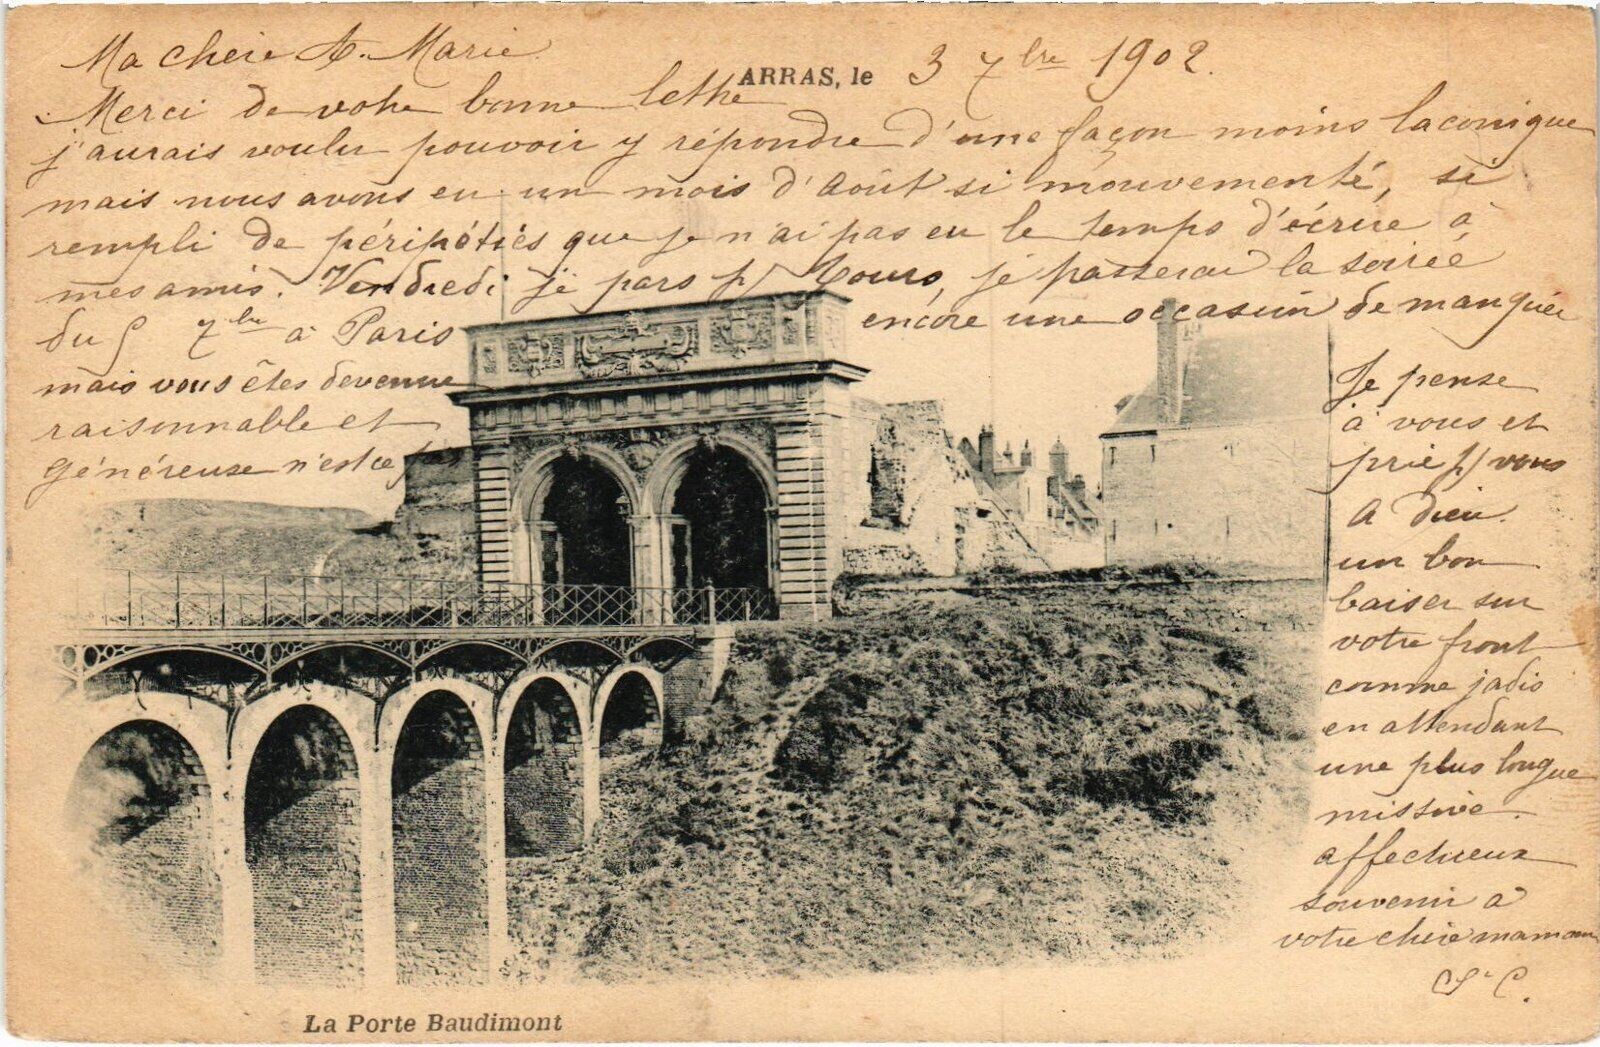 Ma chère A. Marie
ARRAS, le 3 7bre 1902.
Merci de votre bonne lettre
j'aurais voulu pouvoir y répondre d'une façon moins laconique
mais nous avons eu un mois d'Août si mouvementé, si
rempli de péripéties que je n'ai pas eu le temps d'écrire à
mes amis. Vendredi je pars p/ Tours, je passerai la soirée
du 5 7bre à Paris
encore une occasion de manquée
mais vous êtes devenue
raisonnable et
généreuse n'est ce p
Je pense
à vous et
prie p/ vous
A Dieu.
un bon
baiser sur
votre front
comme jadis
en attendant
une plus longue
missive.
affectueux
souvenir à
votre chère maman
C.
La Porte Baudimont